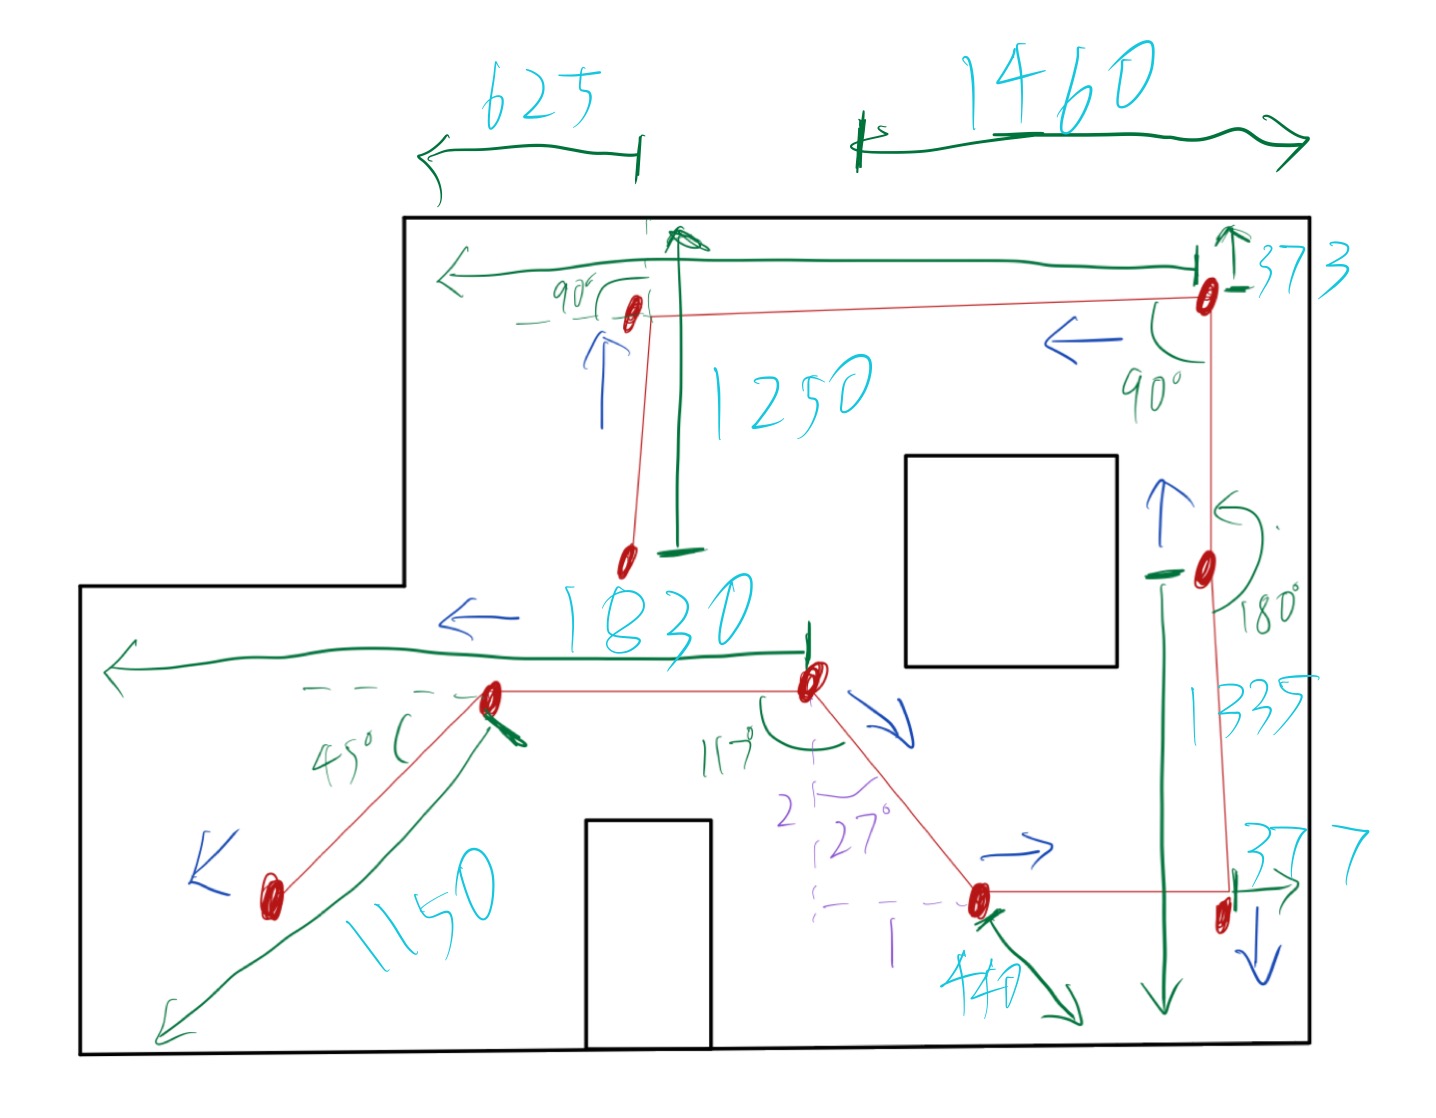 625
1460
373
90°
1250
90°
180°
1830
1335
45°
117°
2
27°
377
1150
1
440